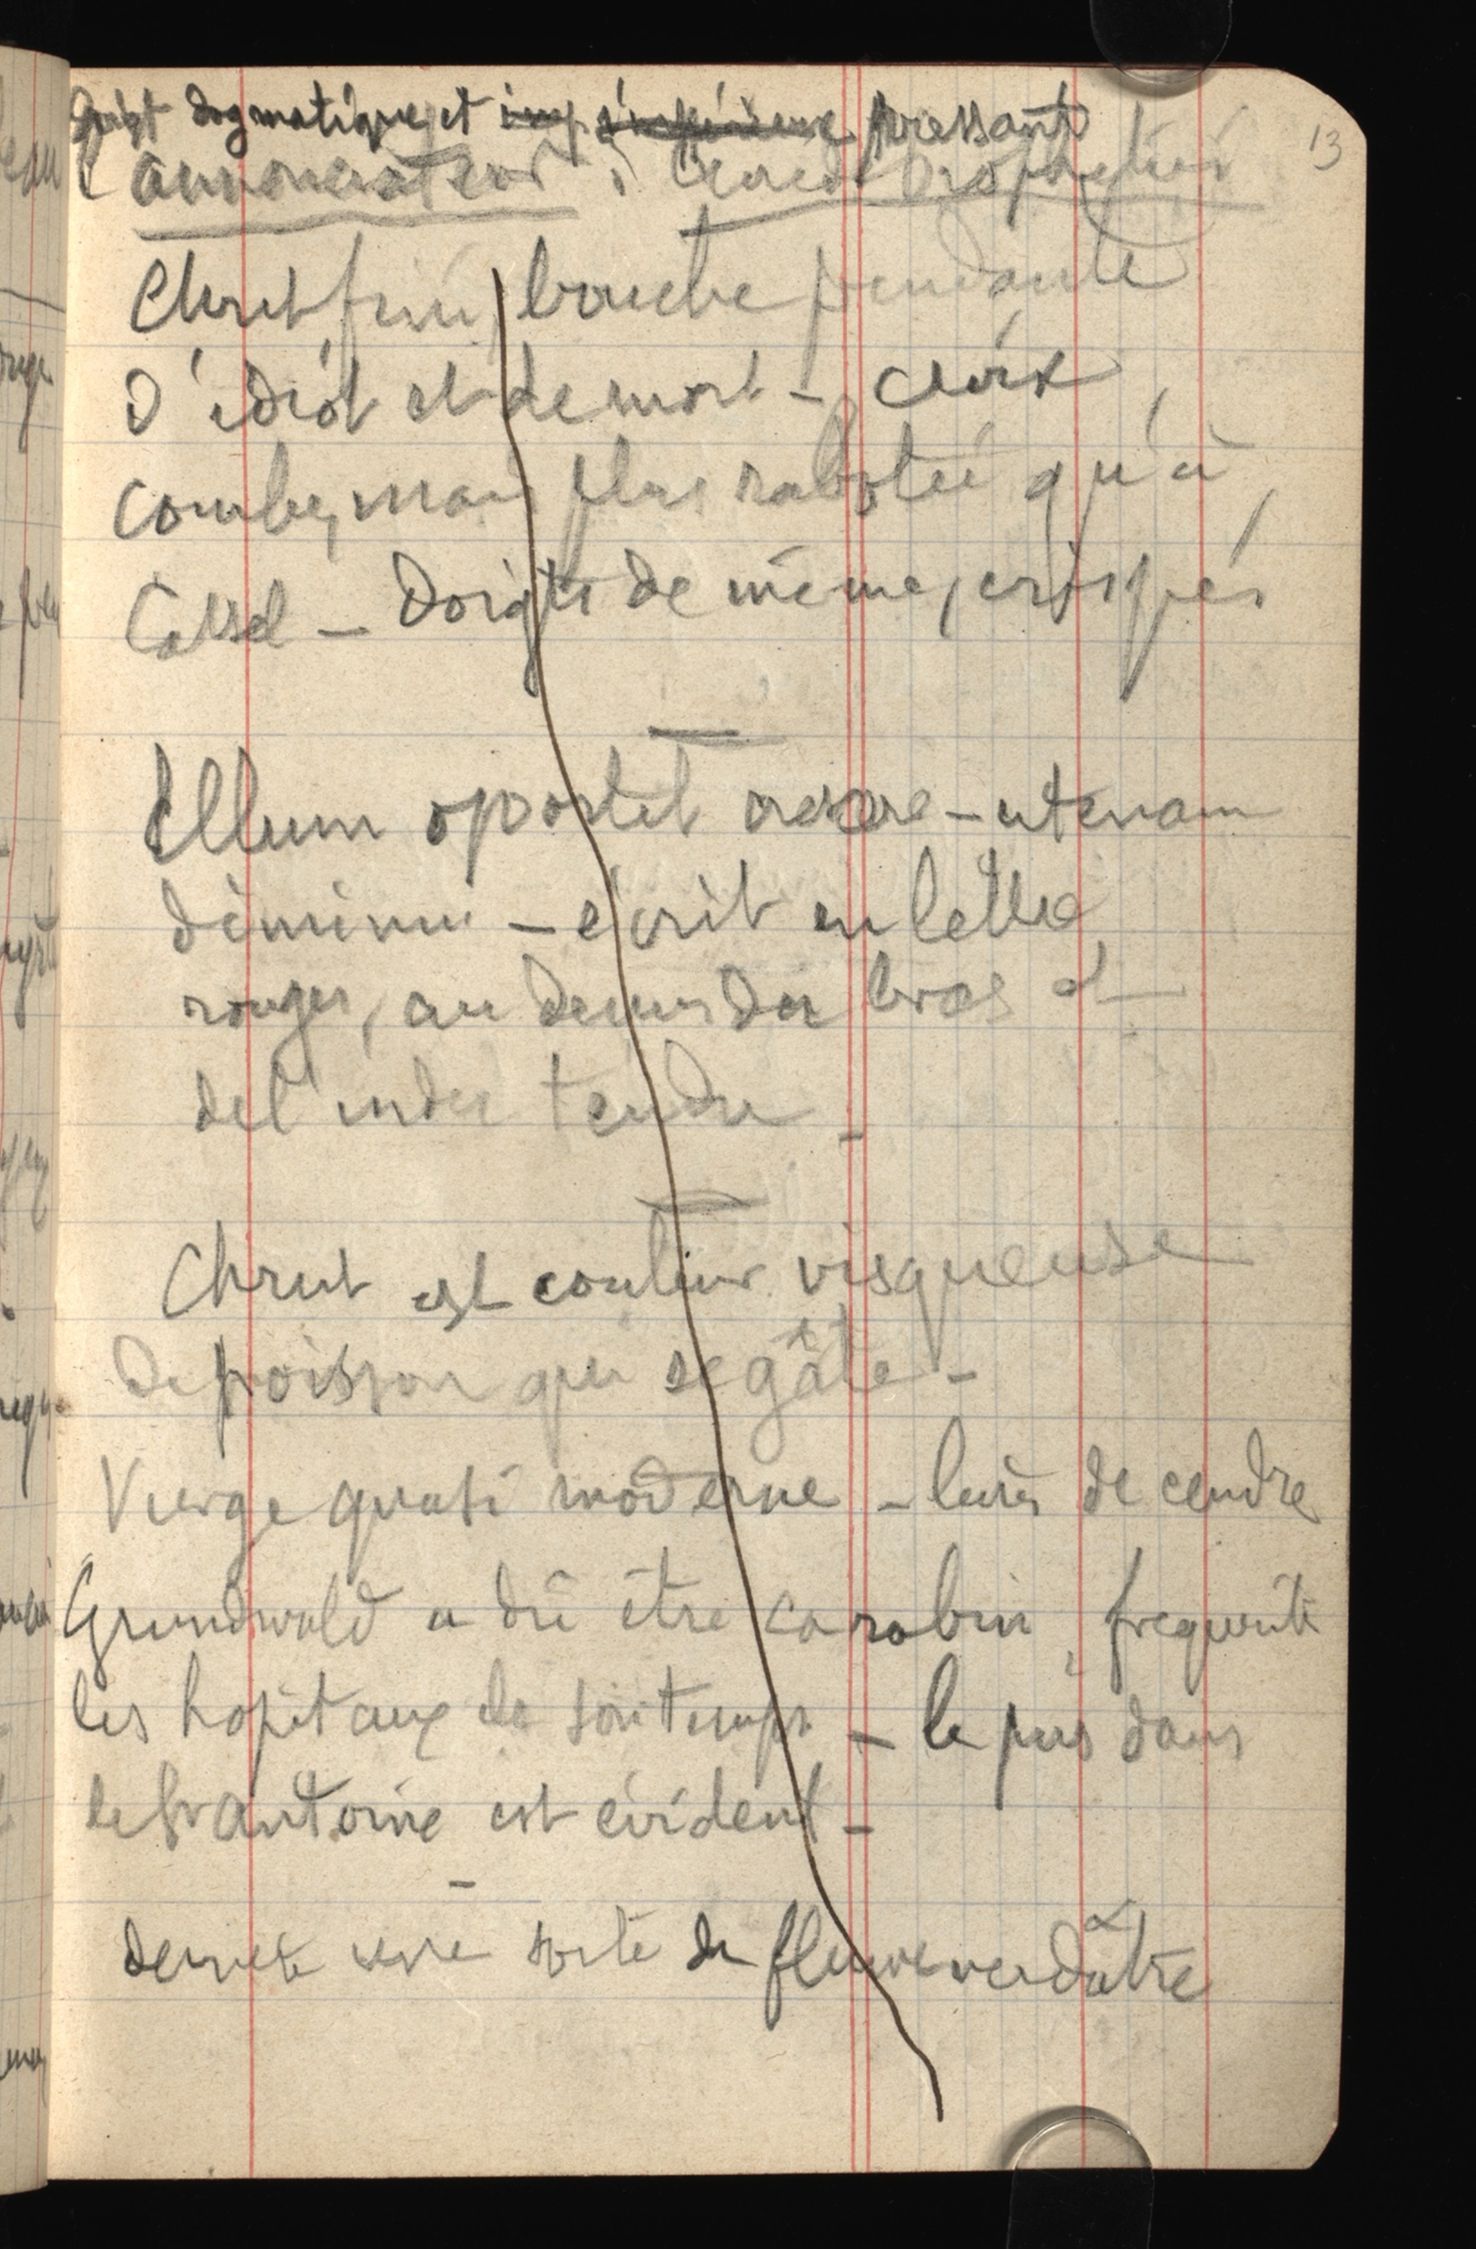 doigt dogmatique et pressant
l'annonciateur,
13
Christ fini, bouche pendante
d'idiot et de mort - croix
courbe, mais plus rabotée qu'à
Cassel - doigts de même, crispés
Illum oportet crescere - me autem
diminui - écrit en lettre
rouges, au dessus du bras et
de l'index tendu -
Christ est couleur visqueuse
de poisson qui se gâte -
Vierge quasi moderne - de cendre
Grundwald a dû être carabin, frequenté
les hopitaux de son temps - le pus dans
le St Antoine est évident -
derrière une sorte de fleuve verdâtre